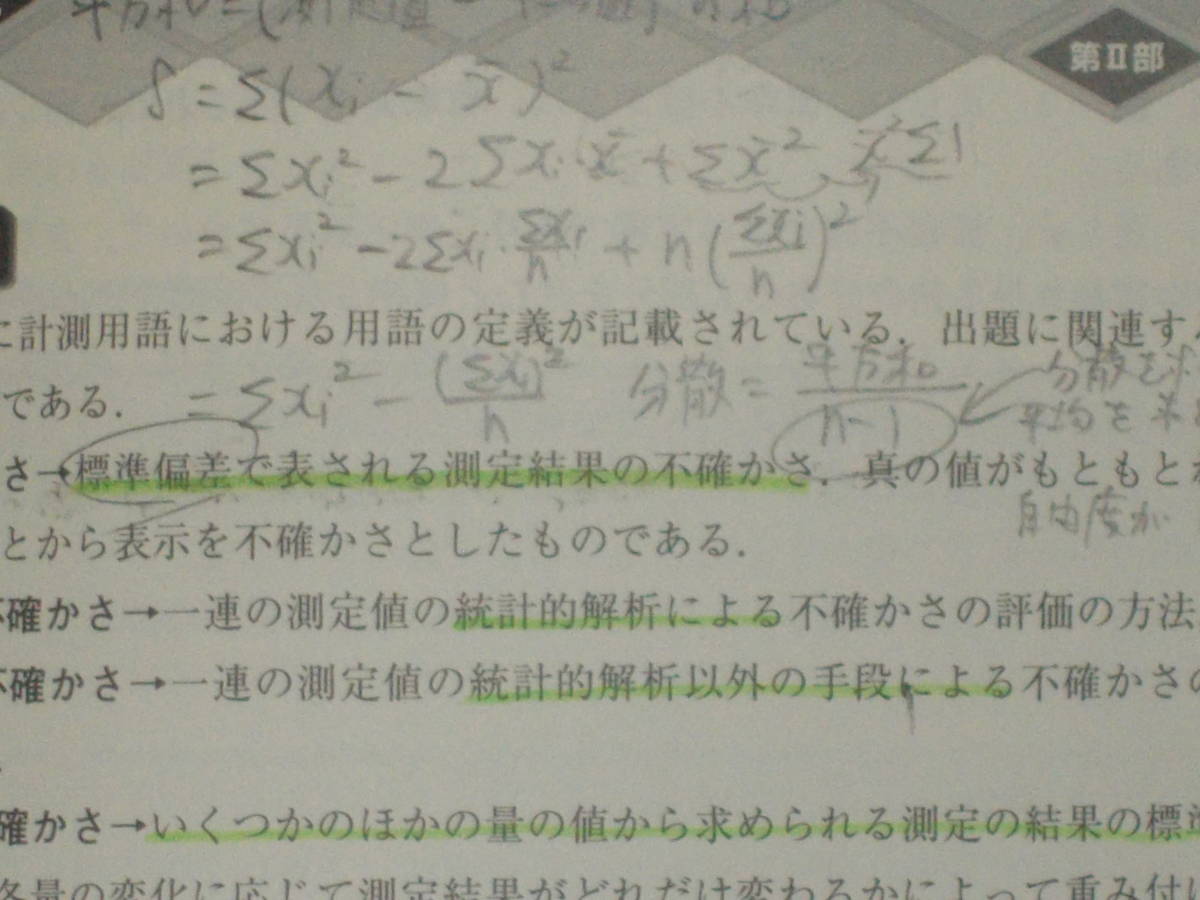 平方和=(測定値-
第Ⅱ部
S=Σ(xi-x̄)²
=Σxi²-2Σxi·x̄+Σx̄² x̄²Σ1
=Σxi²-2Σxi·Σxi/n+n(Σxi/n)²
に計測用語における用語の定義が記載されている．出題に関連す
である．
=Σxi²-(Σxi)²/n 分散=平方和/n-1
分散を求
平均を求
さ→標準偏差で表される測定結果の不確かさ．真の値がもともと
自由度が
とから表示を不確かさとしたものである．
不確かさ→一連の測定値の統計的解析による不確かさの評価の方法
不確かさ→一連の測定値の統計的解析以外の手段による不確かさの
確かさ→いくつかのほかの量の値から求められる測定の結果の標準
各量の変化に応じて測定結果がどれだけ変わるかによって重み付け